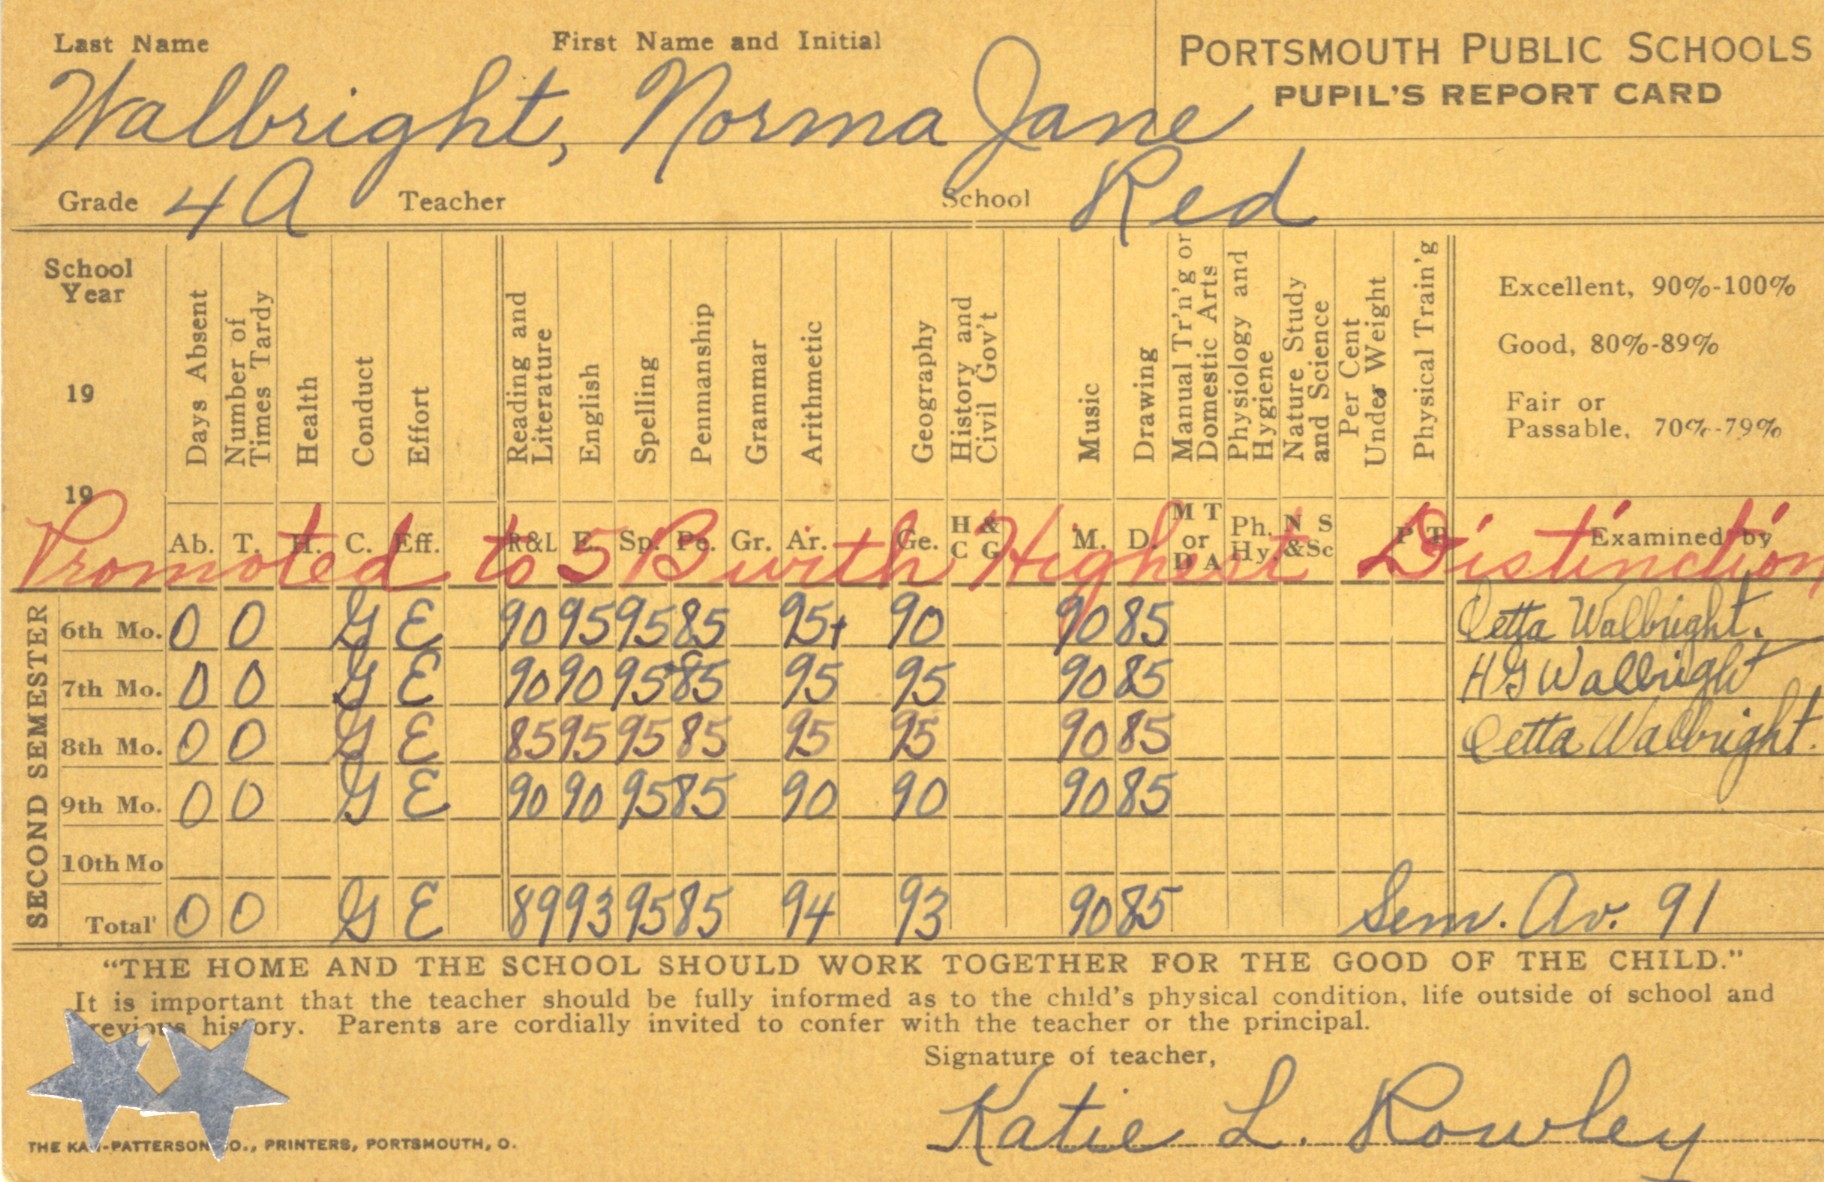 Last Name First Name and Initial PORTSMOUTH PUBLIC SCHOOLS
Walbright, Norma Jane PUPIL'S REPORT CARD
Grade 4A Teacher School Red
School Year
19
19
Days Absent
Number of Times Tardy
Health
Conduct
Effort
Reading and Literature
English
Spelling
Penmanship
Grammar
Arithmetic
Geography
History and Civil Gov't
Music
Drawing
Manual Tr'n'g or Domestic Arts
Physiology and Hygiene
Nature Study and Science
Per Cent Under Weight
Physical Train'g
Excellent, 90%-100%
Good, 80%-89%
Fair or
Passable, 70%-79%
Ab. T. H. C. Eff. R&L E. Sp. Pe. Gr. Ar. Ge. H & C G M. D. M T or D A Ph. Hy. N S &Sc P T Examined by
Promoted to 5B with Highest Distinction
SECOND SEMESTER
6th Mo. 0 0 G E 90 95 95 85 95+ 90 90 85 Oetta Walbright.
7th Mo. 0 0 G E 90 90 95 85 95 95 90 85 H G Walbright
8th Mo. 0 0 G E 85 95 95 85 95 95 90 85 Oetta Walbright.
9th Mo. 0 0 G E 90 90 95 85 90 90 90 85
10th Mo
Total 0 0 G E 89 93 95 85 94 93 90 85 Sem. Av. 91
"THE HOME AND THE SCHOOL SHOULD WORK TOGETHER FOR THE GOOD OF THE CHILD."
It is important that the teacher should be fully informed as to the child's physical condition, life outside of school and
previous history. Parents are cordially invited to confer with the teacher or the principal.
Signature of teacher,
Katie L. Rowley
THE -PATTERSON CO., PRINTERS, PORTSMOUTH, O.